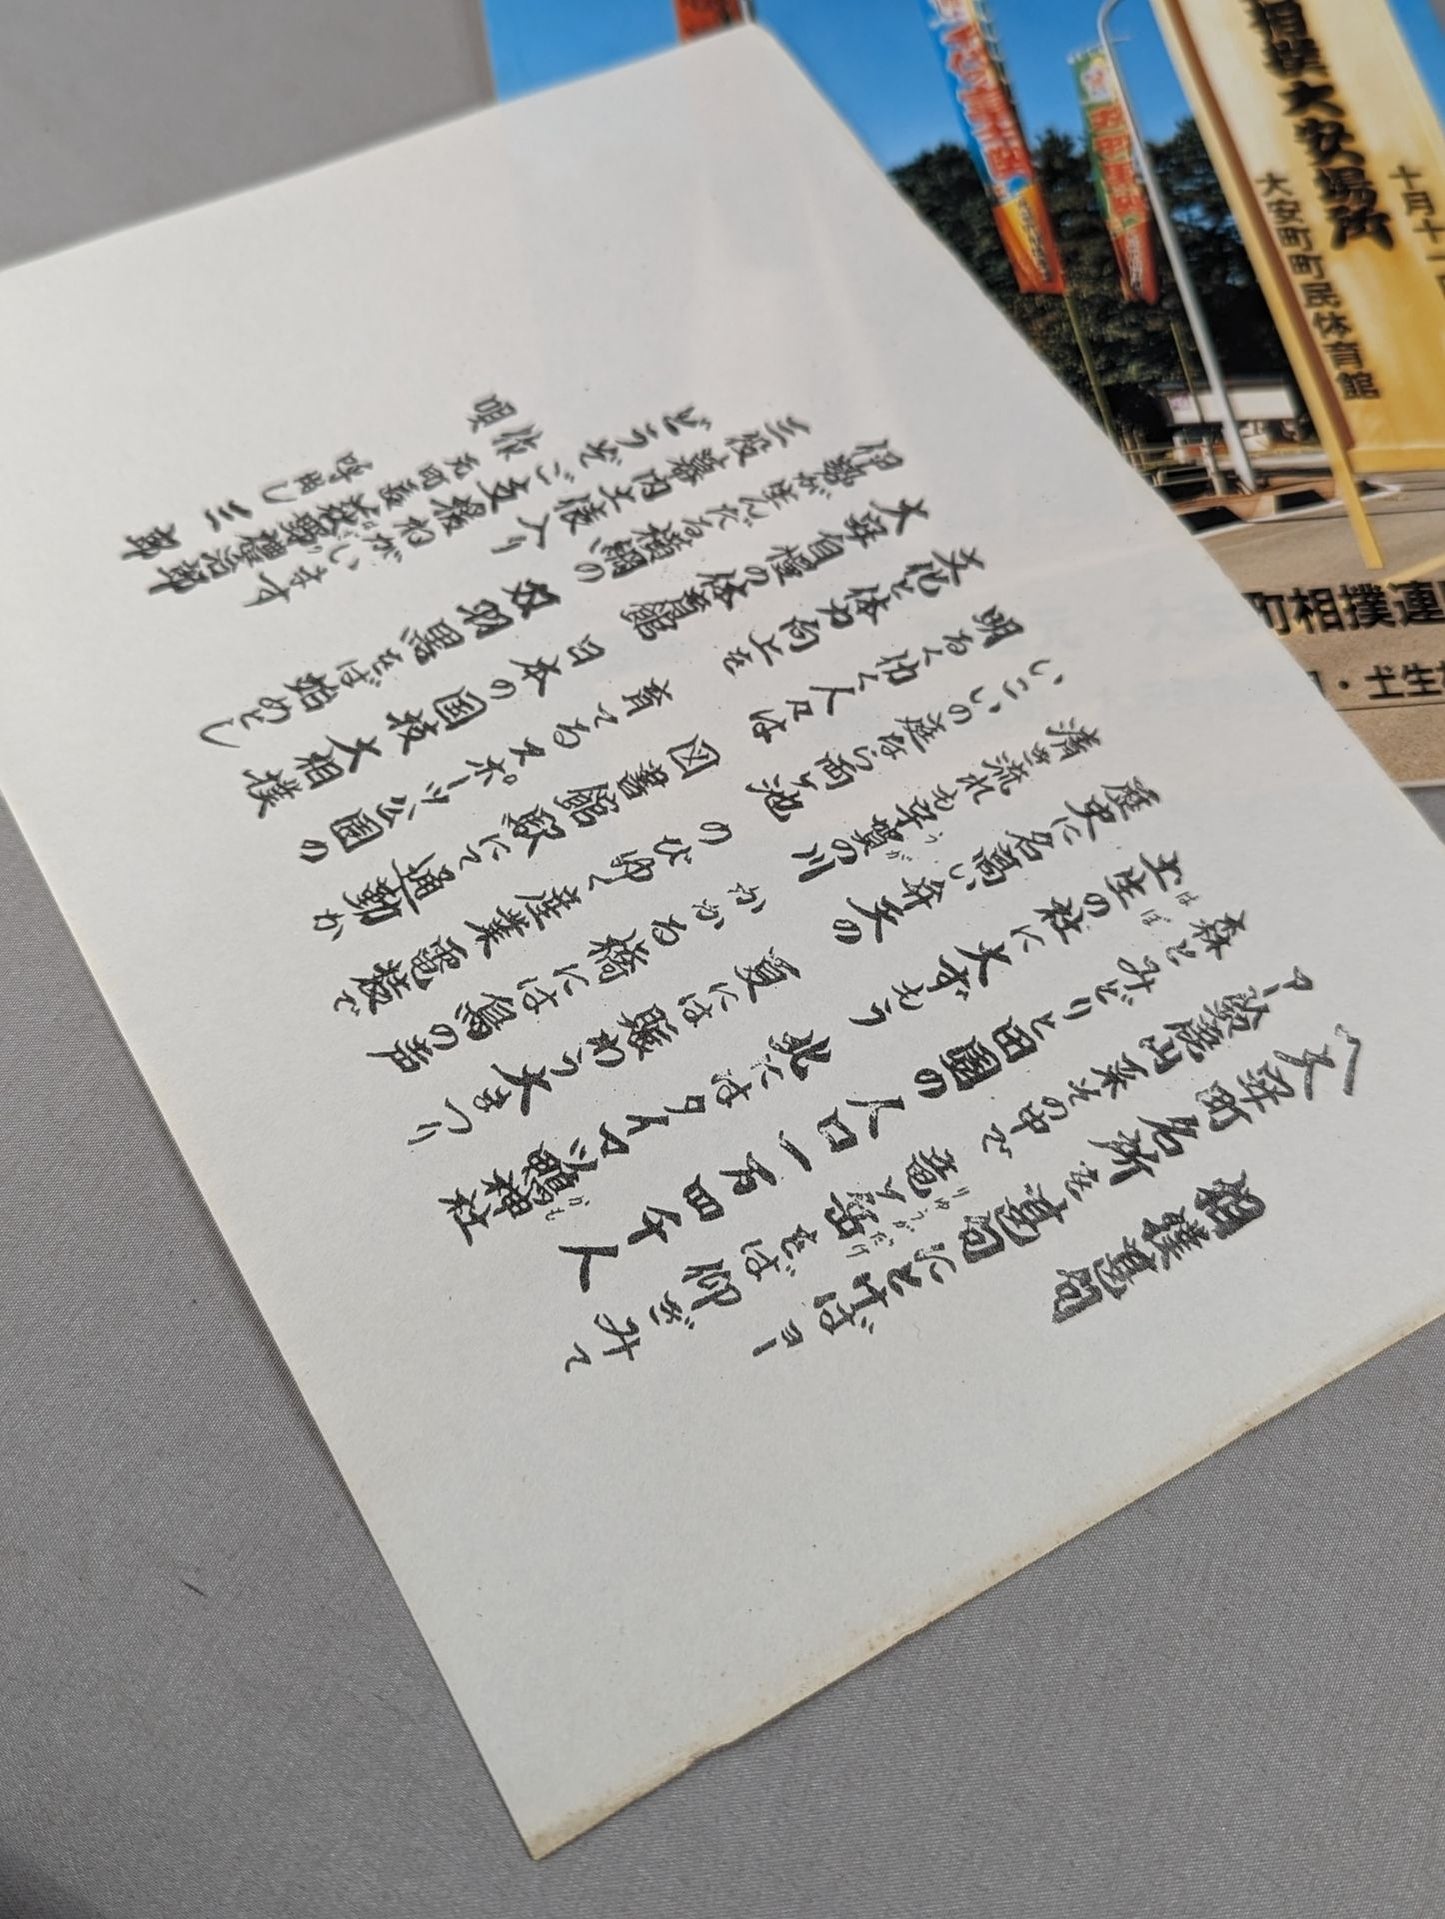 相撲甚句
〽大安町名所を甚句にとけば ヨー
アー 鈴鹿山系その中で 竜ヶ岳をば仰ぎみて
りゅうがだけ
森とみどりと田園の 人口一万四千人
土生の社に大ずもう 北にはタイマツ鴨神社
はば かも
歴史に名高い弁天の 夏には賑わう大まつり
清き流れも宇賀の川 かかる橋には鳥の声
うが
いこいの庭なら両ヶ池 のびゆく産業電装で
明るく働く人々は 図書館駅にて通勤か
文化と体力向上を 育てるスポーツ公園の
大安自慢の体育館 日本の国技大相撲
伊勢が生んだる横綱の 双羽黒をば始めとし
三役幕内土俵入り
どうぞご支援ねがいます
作 元町議
唄 呼出し 三郎
十月十一
相撲大安場所
大安町町民体育館
町相撲連
・土生